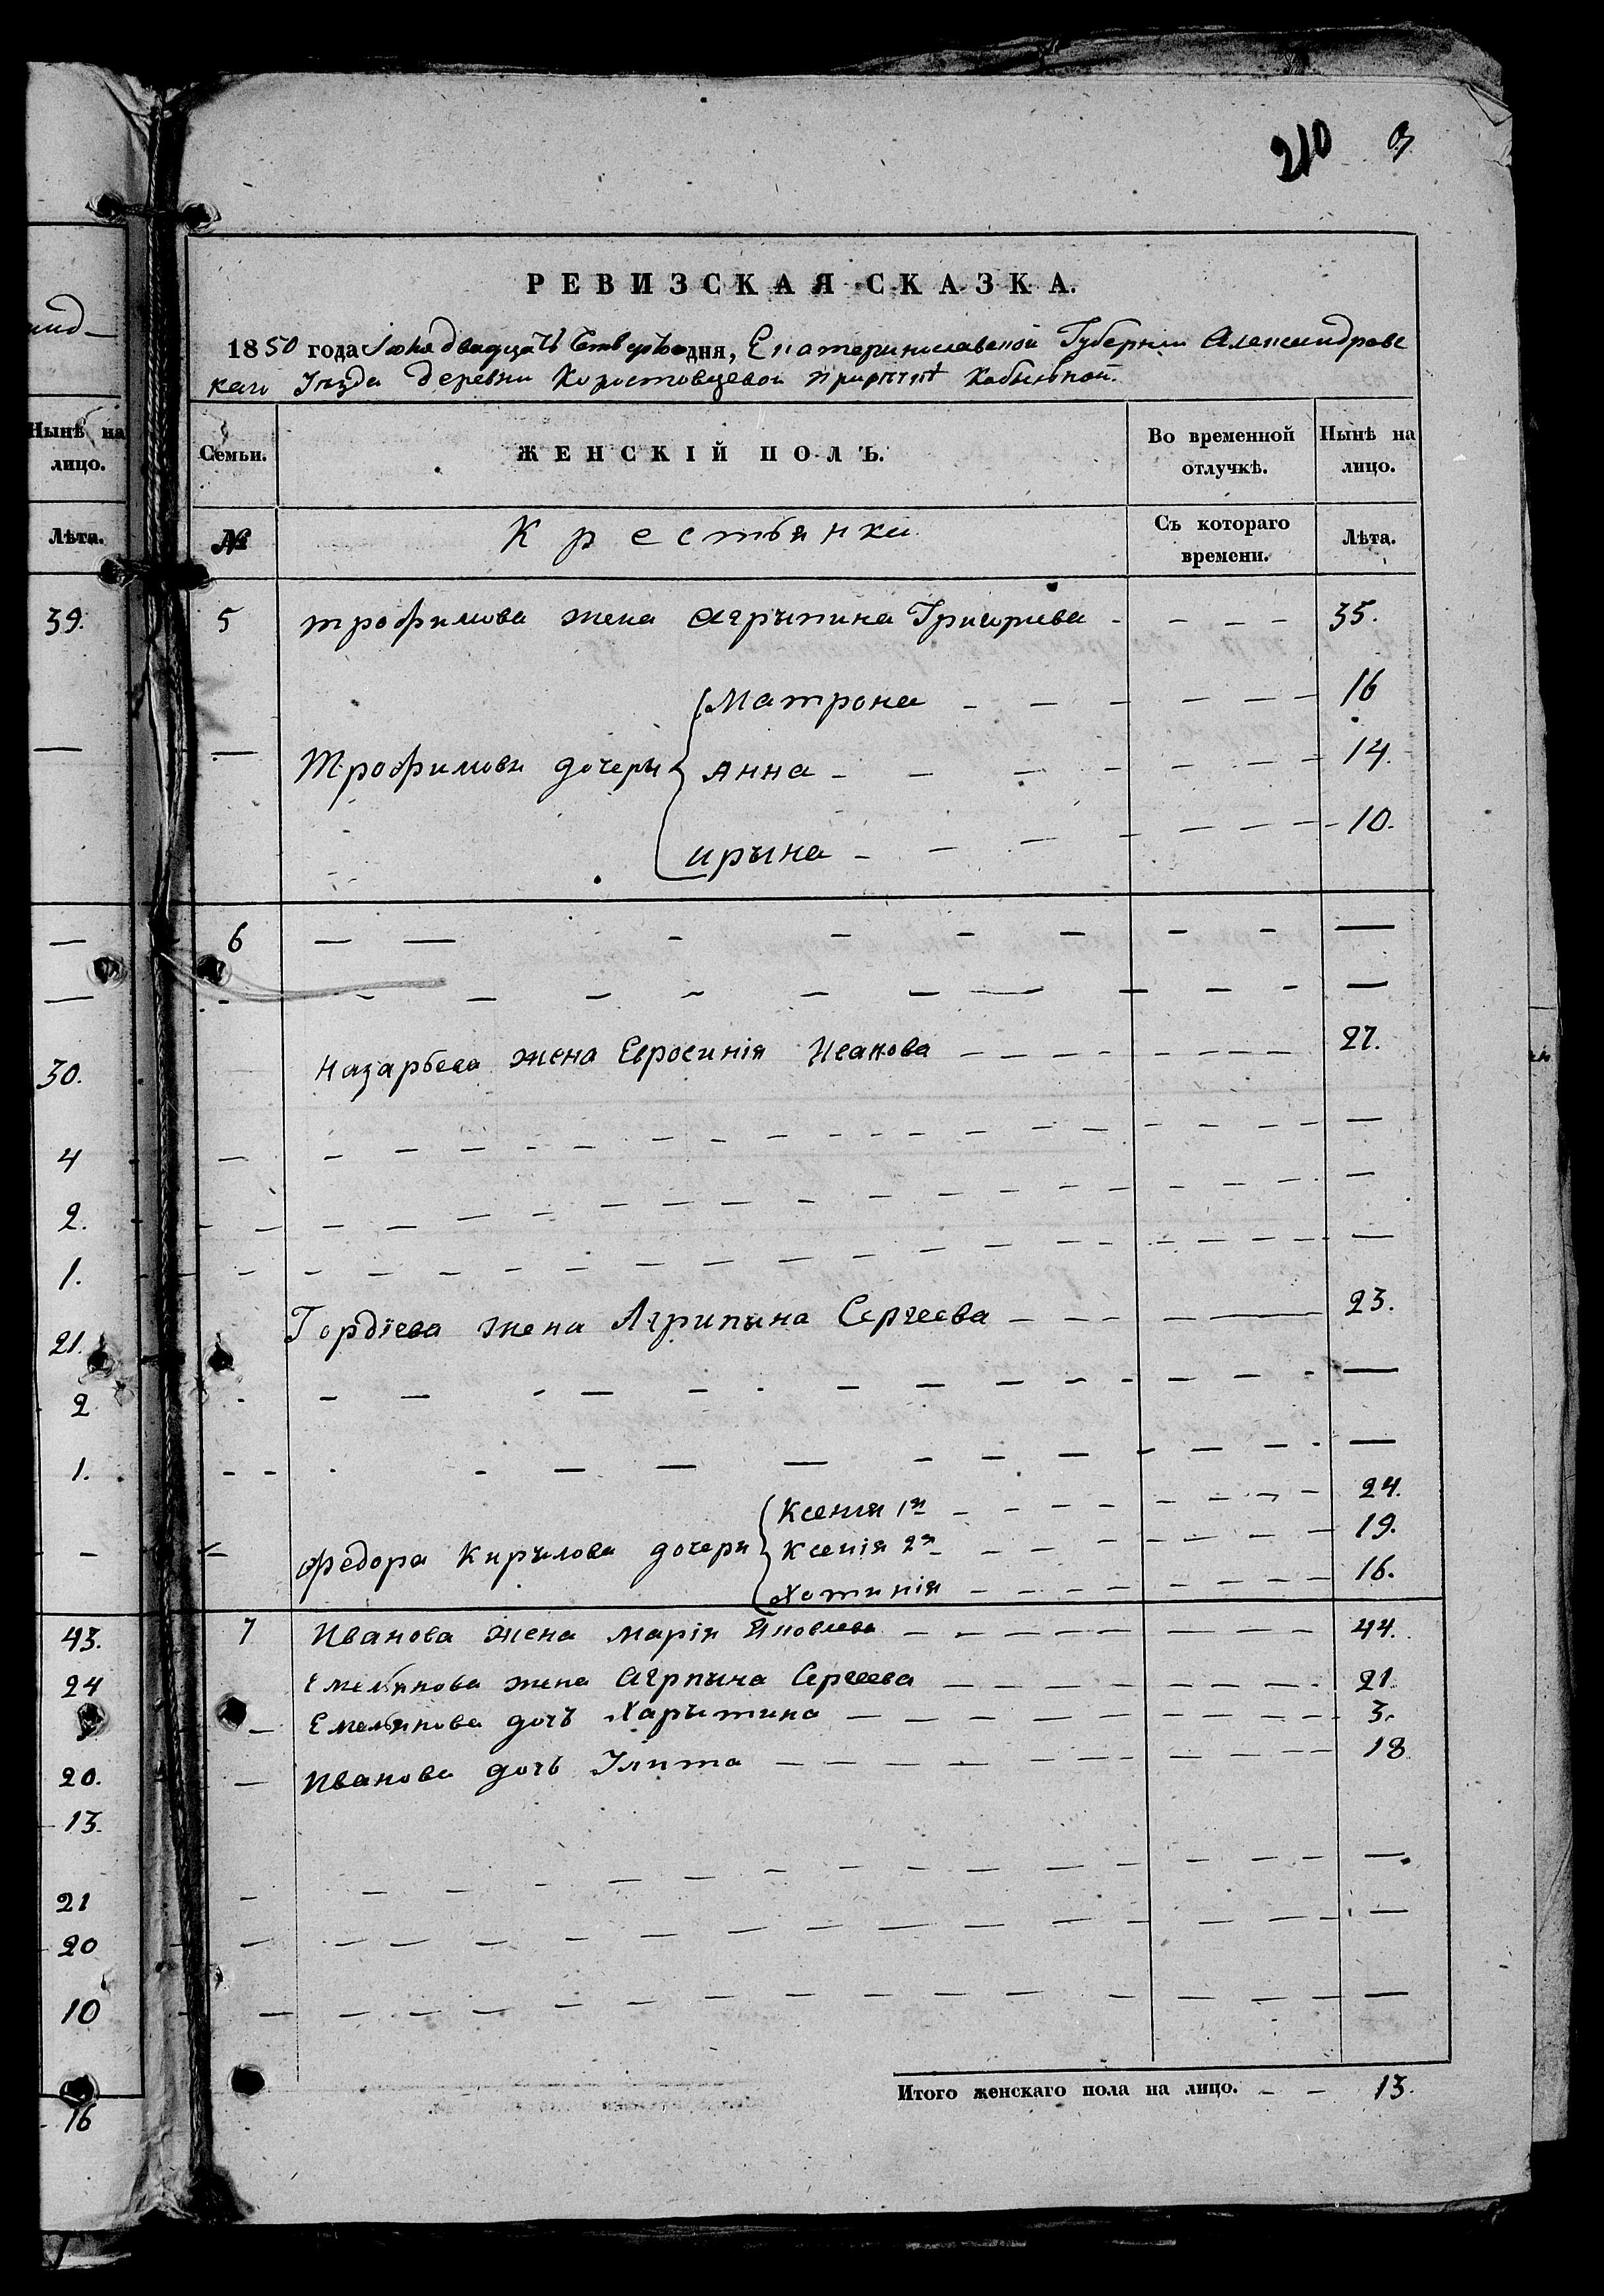 210
инд-
Нынѣ на лицо.
Лѣта.
39.
—
—
—
30.
4
2.
1.
21.
2
1.
-
43.
24
20.
13.
21
20
10
16
РЕВИЗСКАЯ СКАЗКА.
1850 года двадцать дня, Екатеринославской Губернии Александровс
каго Уезда деревни Коростовцевой при Кобильной.
Семьи. ЖЕНСКІЙ ПОЛЪ. Во временной отлучкѣ. Нынѣ на лицо.
№ Крестьянки Съ котораго времени. Лѣта.
5 трофимова жена Агрыпина Григориева - - - - - 35.
Матрона - - - - - - 16
— Трофимови дочеры Анна - - - - - - - 14.
ирына - - - - - - - 10.
6 — — - - - - - - —
- - - - - - - — - - - —
Назарьева жена Евросинія Иванова - - - - - - - - - 27.
— - - - - - - - - - - - - - - - - - —
- - - - - - - - - - - - - - - - - —
- - - - - - - - - - - - - - - - —
Гордіева жена Агрипына Сергеева - - - - - — 23.
- - - - - - - - - - - - - - - - —
- - - - - - - - - - - - - - —
Ксения 1я - - - - - - - - 24.
— федора Кирылова дочери Ксенія 2я - - - - - - - - 19.
Хотинія - - - - - - - - - 16.
7 Иванова жена Марія Яковлева - - - - - - - - - - 44.
Емельянова жена Агрпына Сергеева - - - - - - - - - 21.
— Емельянова дочъ Харытина - - - - - - - - - - - 3.
— Иванова дочь Улита - - - - - - - - - - - 18
- - - - - - - - - - - - - - - —
— - - - - - - - - - - - - - - - —
— - - - - - - - - - - - - - - —
Итого женскаго пола на лицо. - - 13.